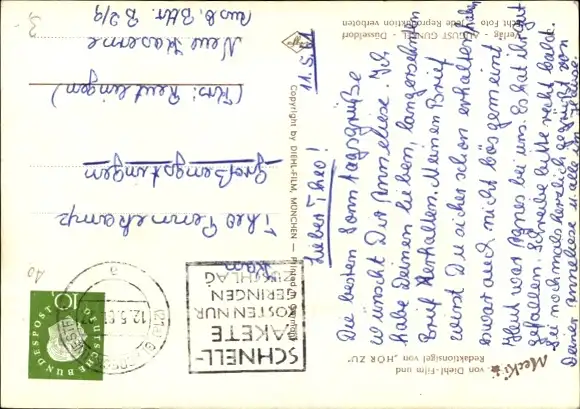 Mecki
von Diehl-Film und
Redaktionsigel von „HÖR ZU"
Verlag - AUGUST GUNKEL - Düsseldorf
Echt Foto Jede Reproduktion verboten
Copyright by DIEHL-FILM, MÜNCHEN — Printed in Germany
11.5.61
Lieber Theo!
Die besten Sonntagsgrüße
wünscht Dir Anneliese. Ich
habe Deinen lieben, langersehnten
Brief erhalten. Meinen Brief
wirst Du sicher schon erhalten haben,
war auch nicht bös gemeint.
Heut war Agnes bei uns. Es hat ihr gut
gefallen. Schreibe bitte recht bald.
Sei nochmals herzlich gegrüßt von
Deiner Anneliese u. alle
10
DEUTSCHE BUNDESPOST
12.5.61
SCHNELL-
PAKETE
KOSTEN NUR
GERINGEN
ZUSCHLAG
Kan.
Theo Pennekamp
Großengstingen
(Krs. Reutlingen)
Neue Kaserne
Ausb. Bttr. B 2/9
3,-